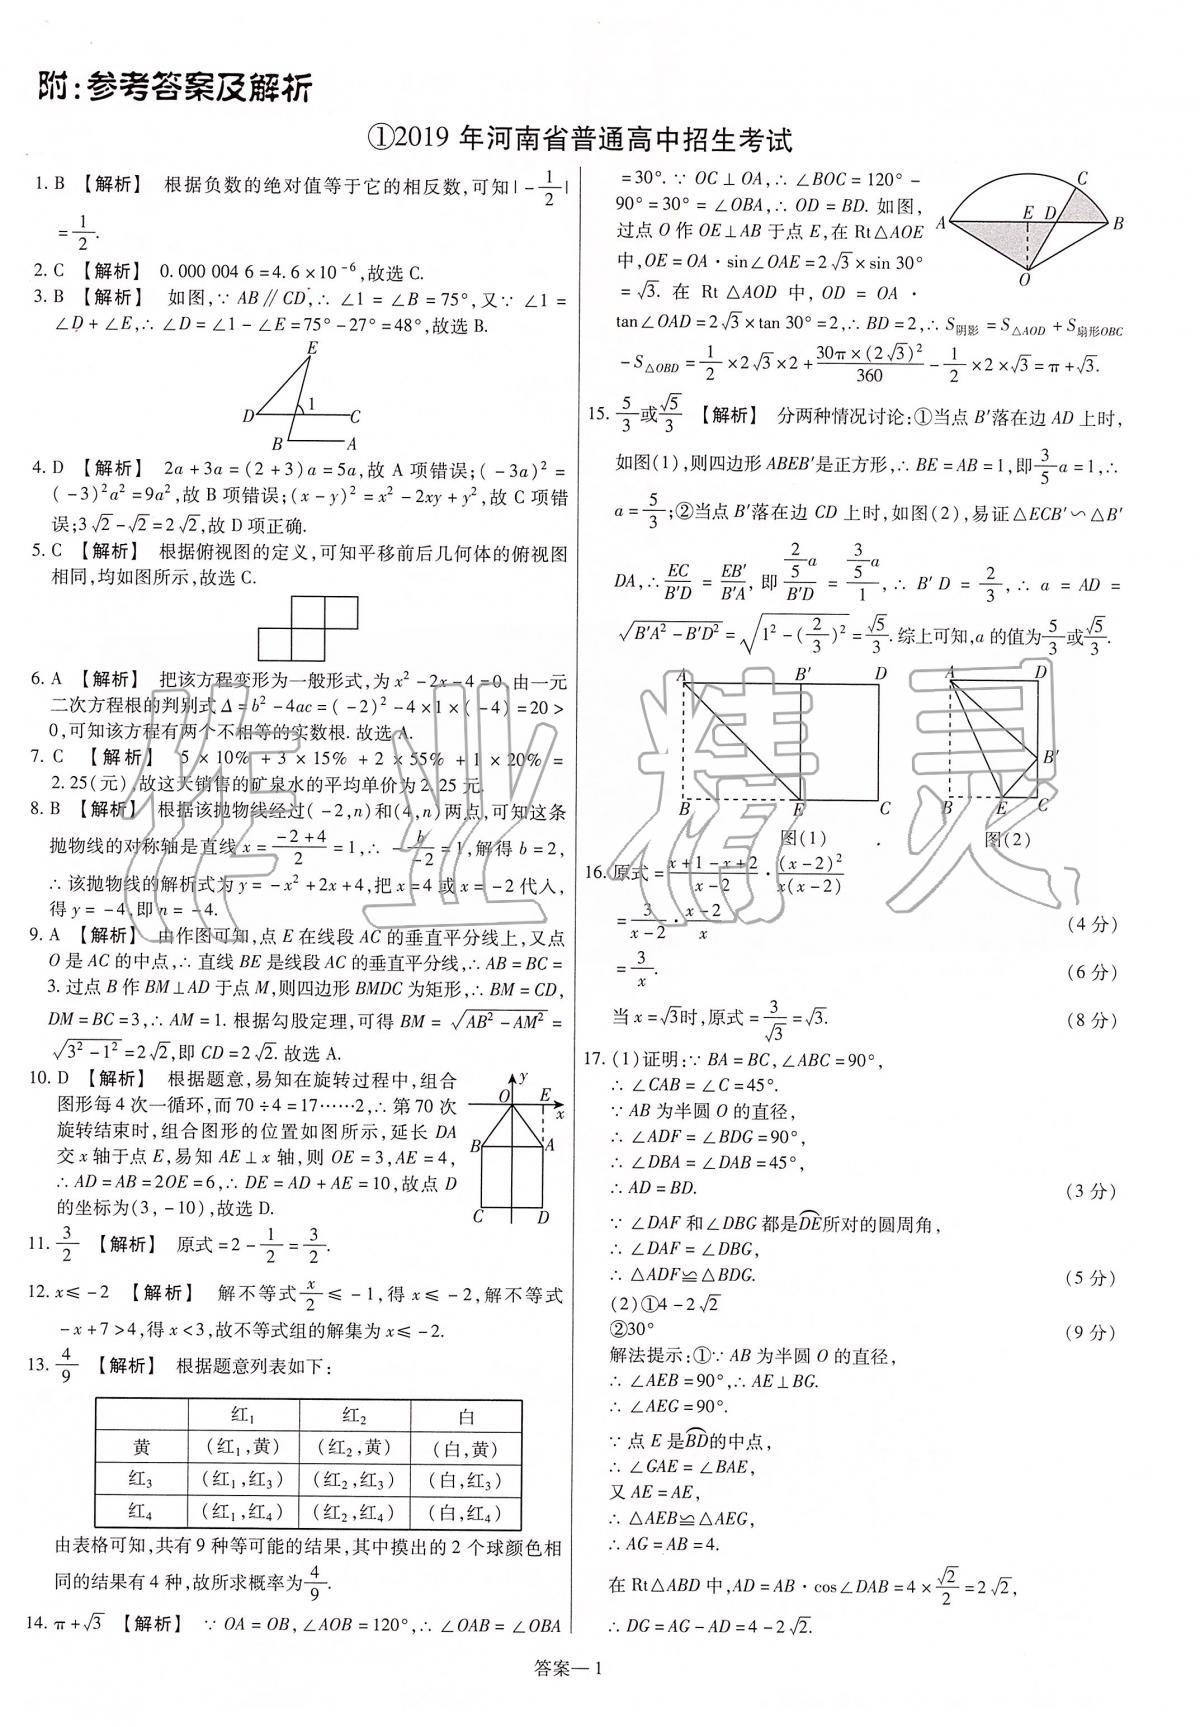 附:参考答案及解析
①2019 年河南省普通高中招生考试
1. B 【解析】 根据负数的绝对值等于它的相反数,可知|-1/2|
=1/2.
2. C 【解析】 0.000 004 6=4.6×10⁻⁶,故选 C.
3. B 【解析】 如图,∵ AB∥CD,∴ ∠1=∠B=75°,又∵ ∠1=
∠D+∠E,∴ ∠D=∠1-∠E=75°-27°=48°,故选 B.
E
D 1 C
B A
4. D 【解析】 2a+3a=(2+3)a=5a,故 A 项错误;(-3a)²=
(-3)²a²=9a²,故 B 项错误;(x-y)²=x²-2xy+y²,故 C 项错
误;3√2-√2=2√2,故 D 项正确.
5. C 【解析】 根据俯视图的定义,可知平移前后几何体的俯视图
相同,均如图所示,故选 C.
6. A 【解析】 把该方程变形为一般形式,为 x²-2x-4=0,由一元
二次方程根的判别式 Δ=b²-4ac=(-2)²-4×1×(-4)=20>
0,可知该方程有两个不相等的实数根. 故选 A.
7. C 【解析】 5×10%+3×15%+2×55%+1×20%=
2.25(元),故这天销售的矿泉水的平均单价为 2.25 元.
8. B 【解析】 根据该抛物线经过(-2,n)和(4,n)两点,可知这条
抛物线的对称轴是直线 x=(-2+4)/2=1,∴ -b/-2=1,解得 b=2,
∴ 该抛物线的解析式为 y=-x²+2x+4,把 x=4 或 x=-2 代人,
得 y=-4,即 n=-4.
9. A 【解析】 由作图可知,点 E 在线段 AC 的垂直平分线上,又点
O 是 AC 的中点,∴ 直线 BE 是线段 AC 的垂直平分线,∴ AB=BC=
3. 过点 B 作 BM⊥AD 于点 M,则四边形 BMDC 为矩形,∴ BM=CD,
DM=BC=3,∴ AM=1. 根据勾股定理,可得 BM=√(AB²-AM²)=
√(3²-1²)=2√2,即 CD=2√2. 故选 A.
10. D 【解析】 根据题意,易知在旋转过程中,组合
图形每 4 次一循环,而 70÷4=17……2,∴ 第 70 次
旋转结束时,组合图形的位置如图所示,延长 DA
交 x 轴于点 E,易知 AE⊥x 轴,则 OE=3,AE=4,
∴ AD=AB=2OE=6,∴ DE=AD+AE=10,故点 D
的坐标为(3,-10),故选 D.
y
O E x
B A
C D
11. 3/2 【解析】 原式=2-1/2=3/2.
12. x≤-2 【解析】 解不等式 x/2≤-1,得 x≤-2,解不等式
-x+7>4,得 x<3,故不等式组的解集为 x≤-2.
13. 4/9 【解析】 根据题意列表如下:
红₁ 红₂ 白
黄 (红₁,黄) (红₂,黄) (白,黄)
红₃ (红₁,红₃) (红₂,红₃) (白,红₃)
红₄ (红₁,红₄) (红₂,红₄) (白,红₄)
由表格可知,共有 9 种等可能的结果,其中摸出的 2 个球颜色相
同的结果有 4 种,故所求概率为 4/9.
14. π+√3 【解析】 ∵ OA=OB,∠AOB=120°,∴ ∠OAB=∠OBA
=30°. ∵ OC⊥OA,∴ ∠BOC=120°-
90°=30°=∠OBA,∴ OD=BD. 如图,
过点 O 作 OE⊥AB 于点 E,在 Rt△AOE
中,OE=OA·sin∠OAE=2√3×sin 30°
=√3. 在 Rt△AOD 中,OD=OA·
tan∠OAD=2√3×tan 30°=2,∴ BD=2,∴ S阴影=S△AOD+S扇形OBC
-S△OBD=1/2×2√3×2+30π×(2√3)²/360-1/2×2×√3=π+√3.
C
A E D B
O
15. 5/3或√5/3 【解析】 分两种情况讨论:①当点 B′落在边 AD 上时,
如图(1),则四边形 ABEB′是正方形,∴ BE=AB=1,即3/5a=1,∴
a=5/3;②当点 B′落在边 CD 上时,如图(2),易证△ECB′∽△B′
DA,∴ EC/B′D=EB′/B′A,即 (2/5a)/B′D=(3/5a)/1,∴ B′D=2/3,∴ a=AD=
√(B′A²-B′D²)=√(1²-(2/3)²)=√5/3. 综上可知,a 的值为5/3或√5/3.
A B′ D
B E C
图(1)
A D
B′
B E C
图(2)
16. 原式=(x+1-x+2)/(x-2)·(x-2)²/x(x-2)
=3/(x-2)·(x-2)/x (4 分)
=3/x. (6 分)
当 x=√3时,原式=3/√3=√3. (8 分)
17. (1)证明:∵ BA=BC,∠ABC=90°,
∴ ∠CAB=∠C=45°.
∵ AB 为半圆 O 的直径,
∴ ∠ADF=∠BDG=90°,
∴ ∠DBA=∠DAB=45°,
∴ AD=BD. (3 分)
∵ ∠DAF 和∠DBG 都是D͡E所对的圆周角,
∴ ∠DAF=∠DBG,
∴ △ADF≌△BDG. (5 分)
(2)①4-2√2
②30° (9 分)
解法提示:①∵ AB 为半圆 O 的直径,
∴ ∠AEB=90°,∴ AE⊥BG.
∴ ∠AEG=90°.
∵ 点 E 是B͡D的中点,
∴ ∠GAE=∠BAE,
又 AE=AE,
∴ △AEB≌△AEG,
∴ AG=AB=4.
在 Rt△ABD 中,AD=AB·cos∠DAB=4×√2/2=2√2,
∴ DG=AG-AD=4-2√2.
答案— 1
作业精灵